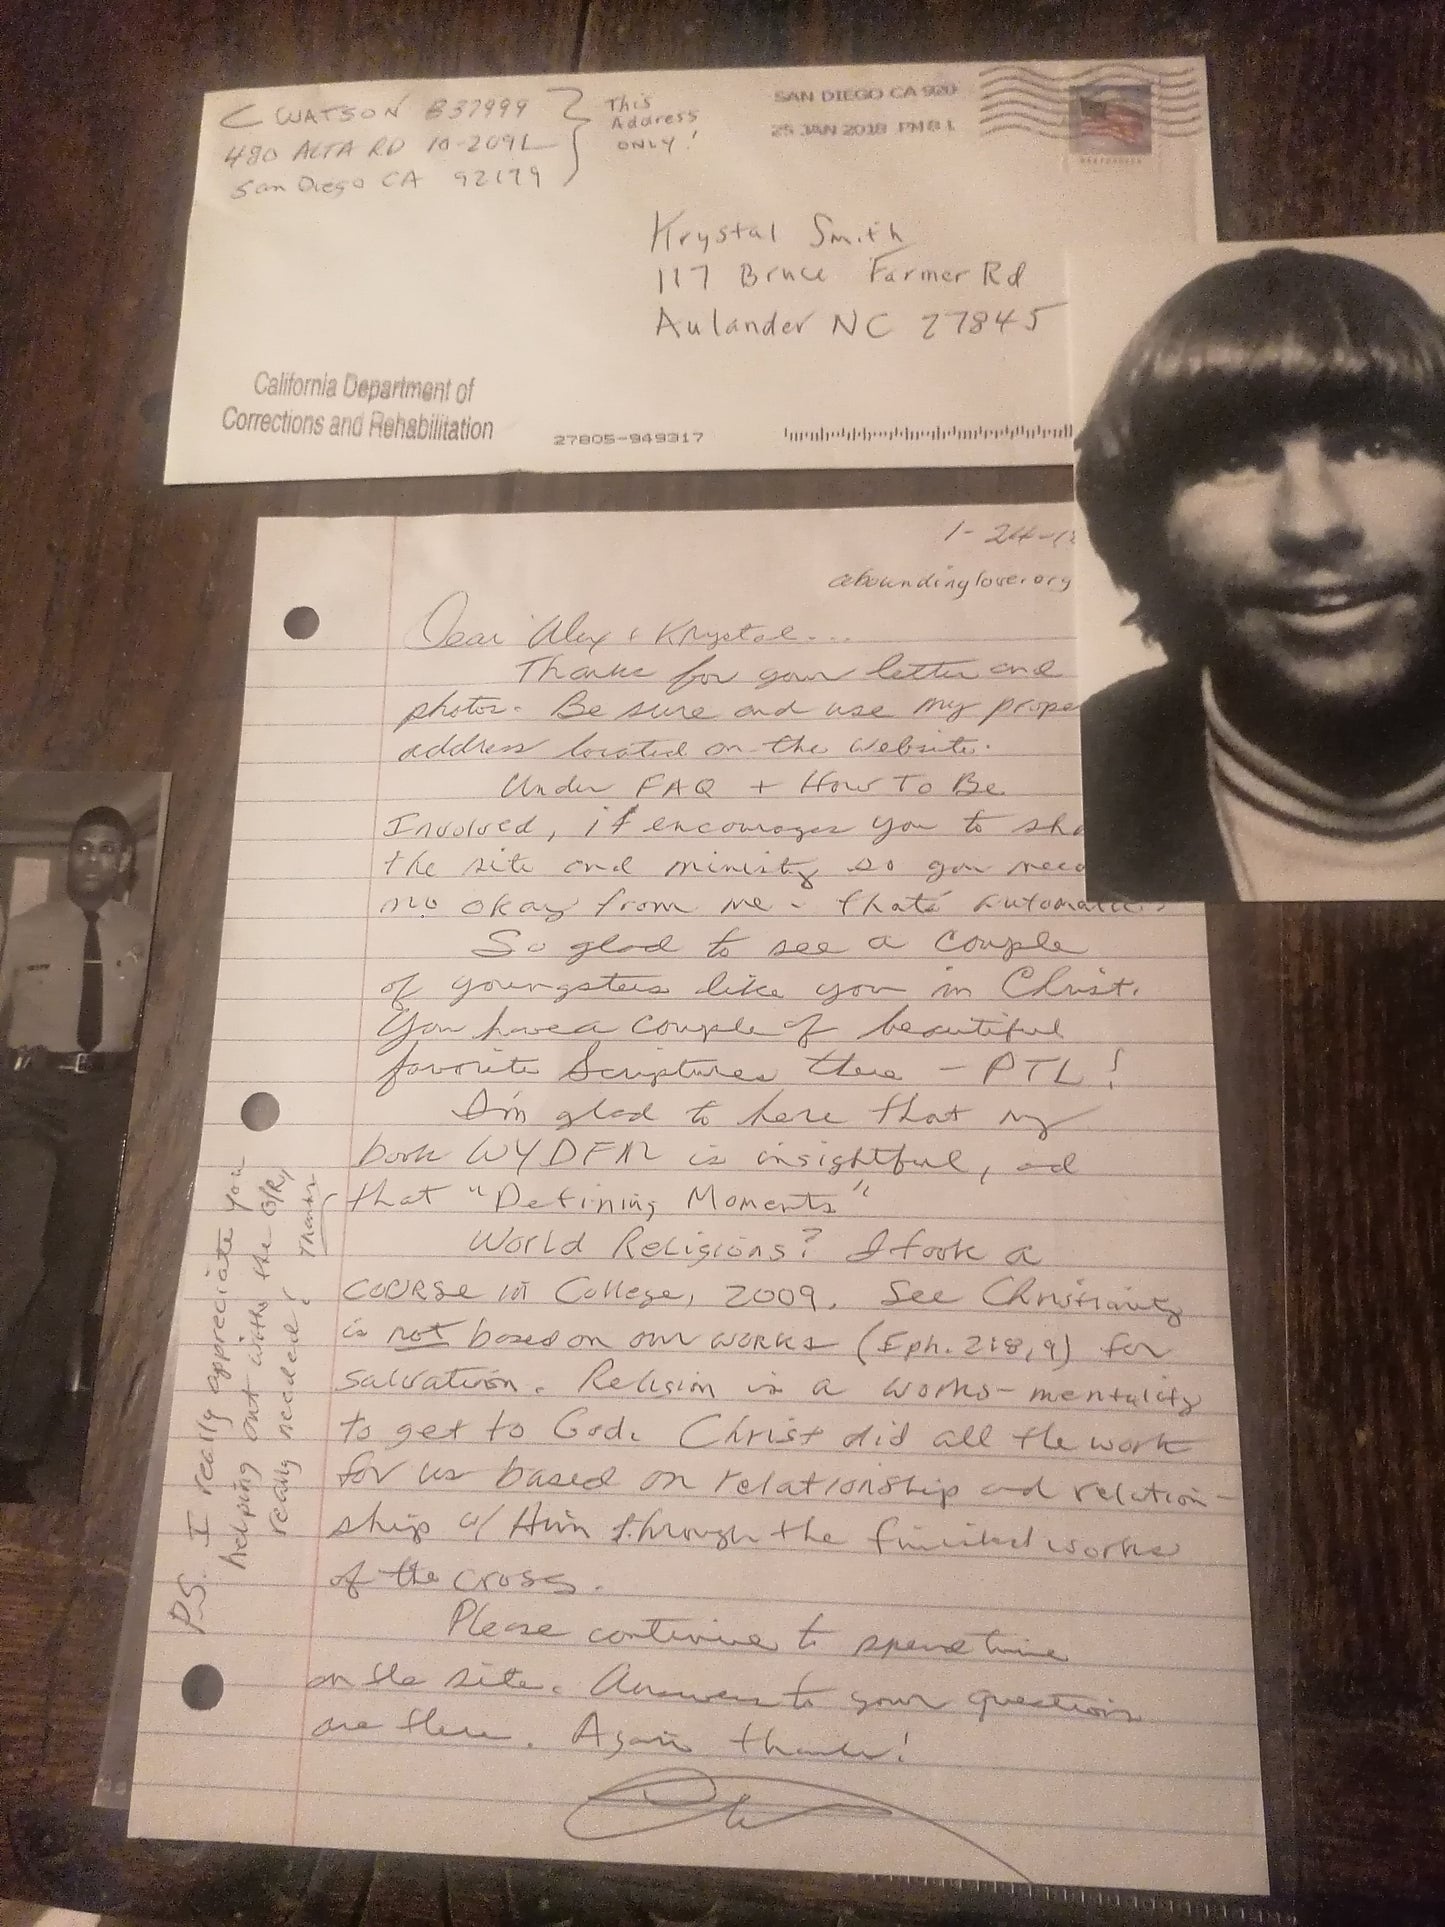 C WATSON B37999
480 ALTA RD 1A-209L
San Diego CA 92179
This
Address
ONLY!
SAN DIEGO CA 920
25 JAN 2018 PM 8 L
Krystal Smith
117 Bruce Farmer Rd
Aulander NC 27845
California Department of
Corrections and Rehabilitation
27805-949317
1-24-18
aboundinglove.org
Dear Alex & Krystal...
Thanks for your letter and
photos. Be sure and use my prope
address located on the website.
Under FAQ + How To Be
Involved, it encourages you to sha
the site and ministry so you need
no okay from me - that's automatic.
So glad to see a couple
of youngsters like you in Christ.
You have a couple of beautiful
favorite Scriptures there - PTL!
I'm glad to here that my
book WYDFM is insightful, ad
that "Defining Moments"
World Religions? I took a
course in College, 2009. See Christianity
is not based on our works (Eph. 2:8,9) for
salvation. Religion is a works-mentality
to get to God. Christ did all the work
for us based on relationship and relation-
ship w/ Him through the finished works
of the cross.
Please continue to spend time
on the site. Answers to your questions
are there. Again thanks!
P.S. I really appreciate you
helping out with the
really needed! Thanks